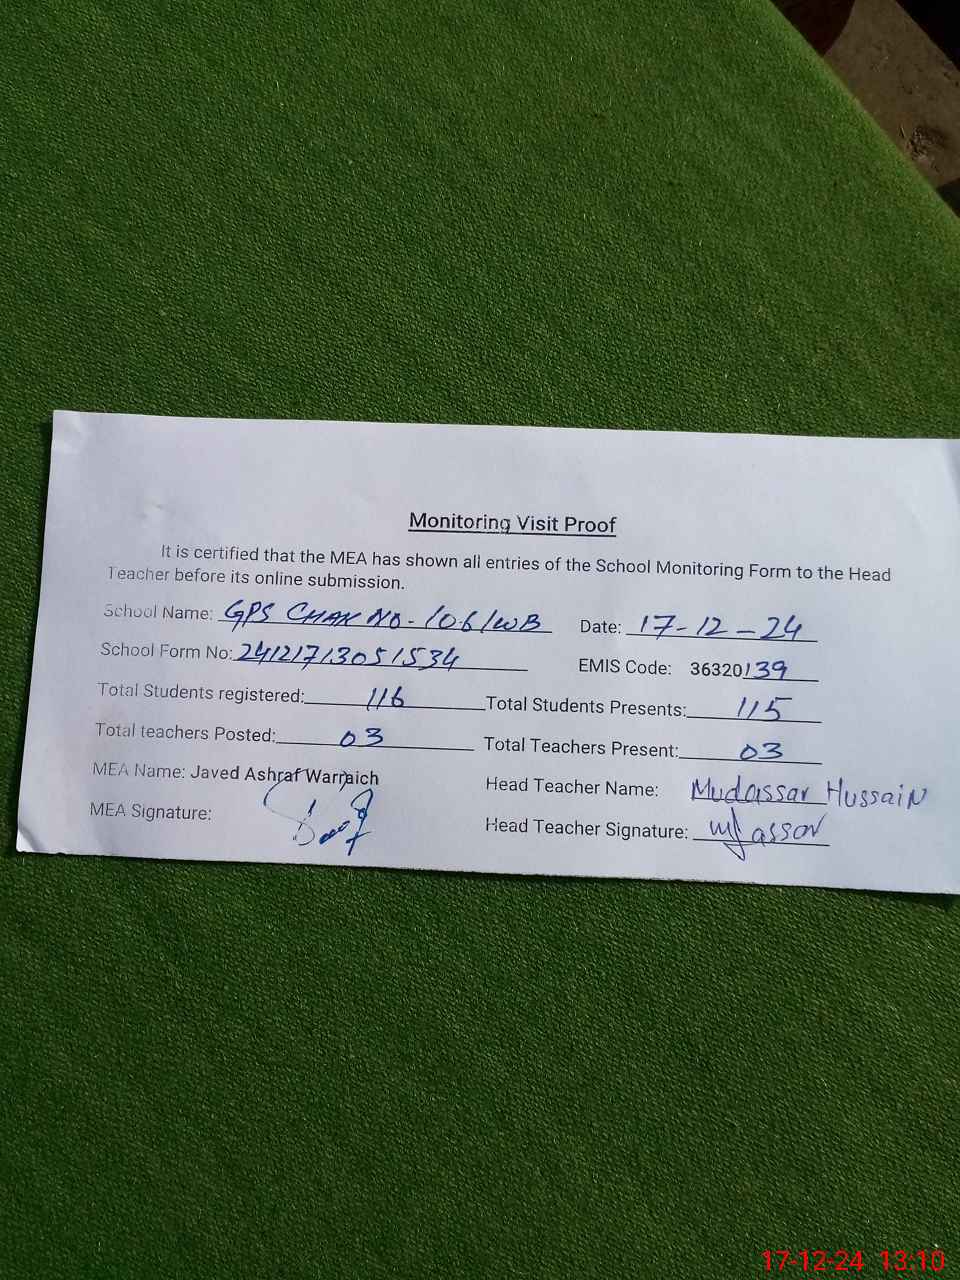 Monitoring Visit Proof
It is certified that the MEA has shown all entries of the School Monitoring Form to the Head
Teacher before its online submission.
School Name: GPS CHAK NO. 106/WB Date: 17-12-24
School Form No: 24121713051534 EMIS Code: 36320139
Total Students registered: 116 Total Students Presents: 115
Total teachers Posted: 03 Total Teachers Present: 03
MEA Name: Javed Ashraf Warraich Head Teacher Name: Mudassar Hussain
MEA Signature: Head Teacher Signature:
17-12-24 13:10